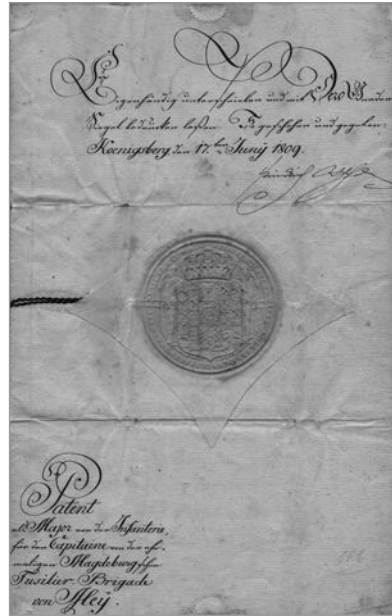 Eigenhändig unterschrieben und mit Dero Gnaden
Siegel bedrucken laßen. So geschehen und gegeben
Koenigsberg den 17.ten Juny 1809.
Friedrich
Patent
als Major von der Infanterie,
für den Capitaine von der ehe-
maligen Magdeburgschen
Fusilier-Brigade
von